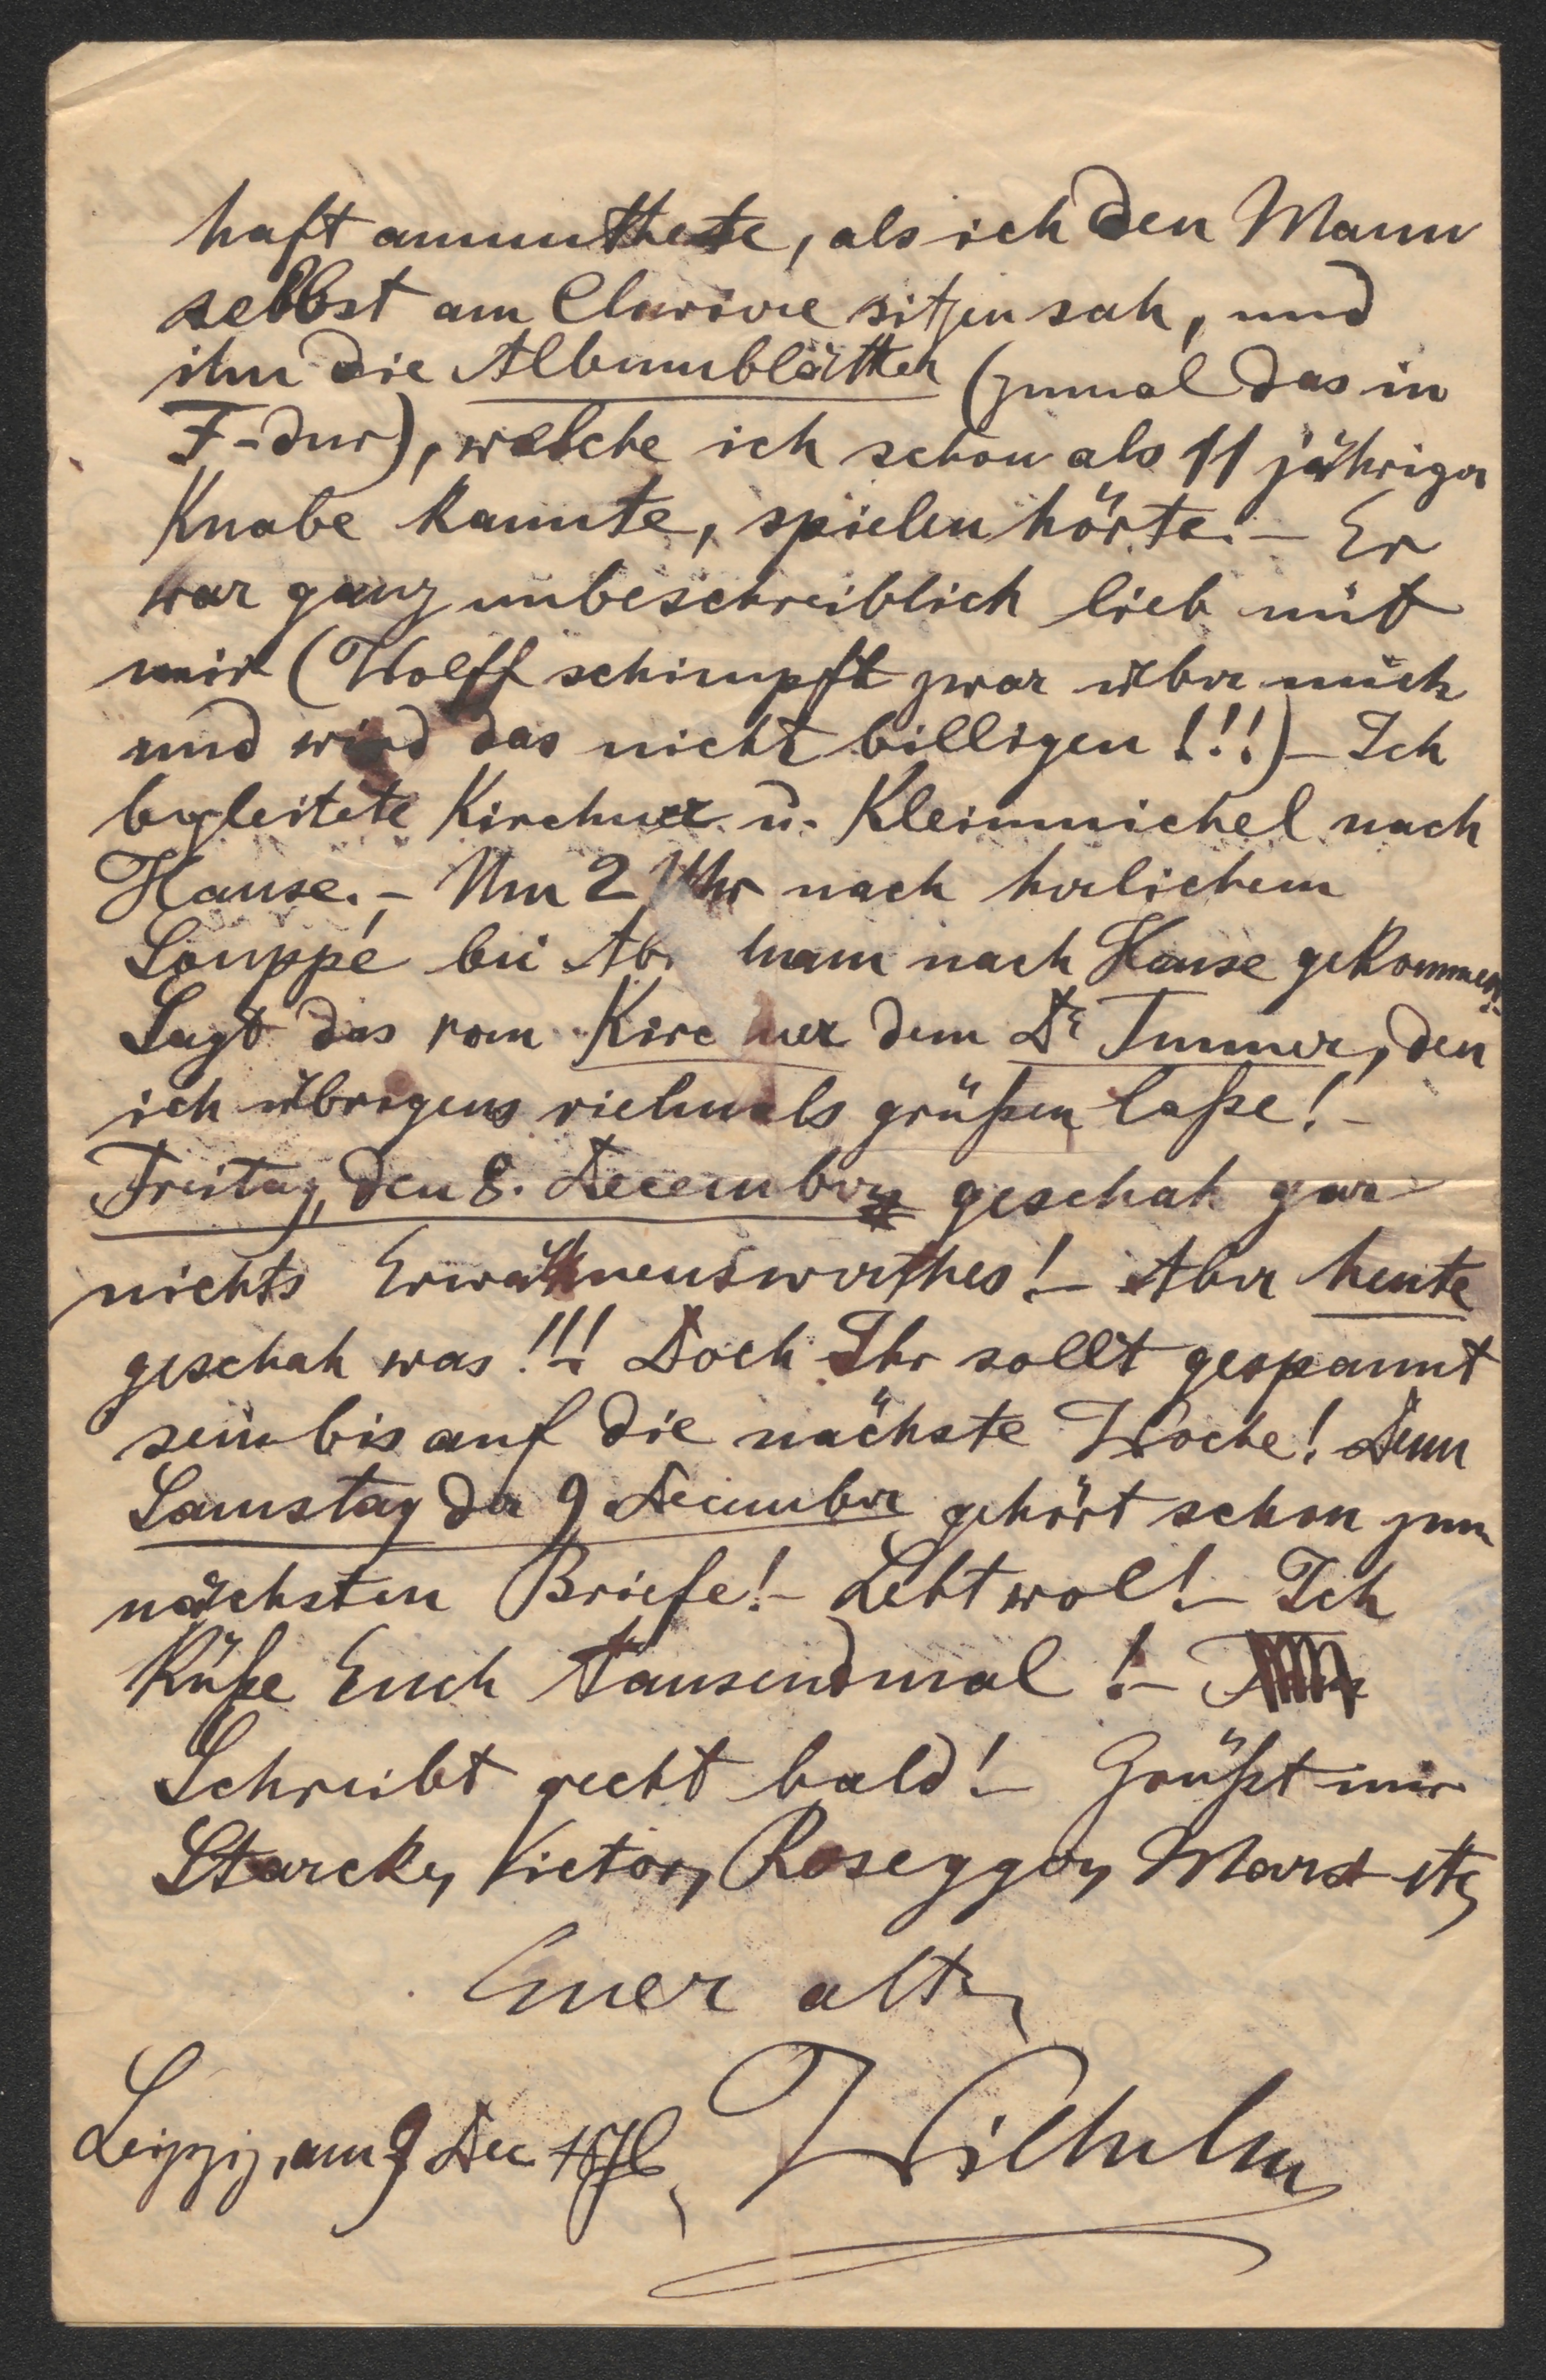 haft anmuthete, als ich den Mann
selbst am Claviere sitzen sah, und
ihn die Albumblätter (zumal das in
F-dur), welche ich schon als 11 jähriger
Knabe kannte, spielen hörte. – Er
war ganz unbeschreiblich lieb mit
mir (Wolff schimpft zwar über mich
und wird das nicht billigen!!!) – Ich
begleitete Kirchner u. Kleinmichel nach
Hause. – Um 2 Uhr nach herlichem
Souppé bei Ab. ham nach Hause gekommen!
Sagt das vom Kirc ner dem Dr Immer, den
ich übrigens vielmals grüßen laße! –
Freitag, den 8. December geschah gar
nichts Erwähnenswerthes! – Aber heute
geschah was!!! Doch Ihr sollt gespannt
sein bis auf die nächste Woche! Denn
Samstag der 9 December gehört schon zum
nächsten Briefe! – Lebt wol! – Ich
Küße Euch tausendmal! –
Schreibt recht bald! – Grüßt mir
Starcke, Victor, Rosegger, Marx etc
Euer alter
Leipzig, am 9 Dec 1876, Wilhelm